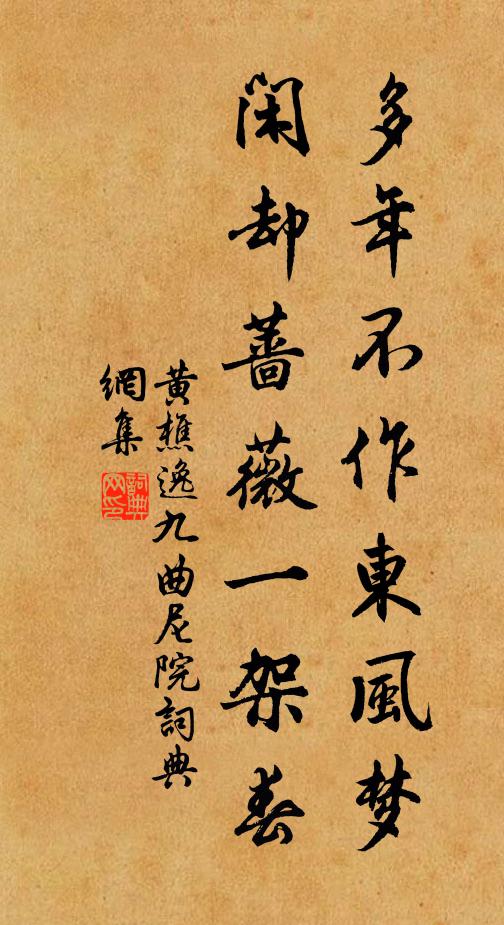 多年不作東風梦
閑却薔薇一架春
黄樵逸九曲尼院詞典
網集
詞典
网印